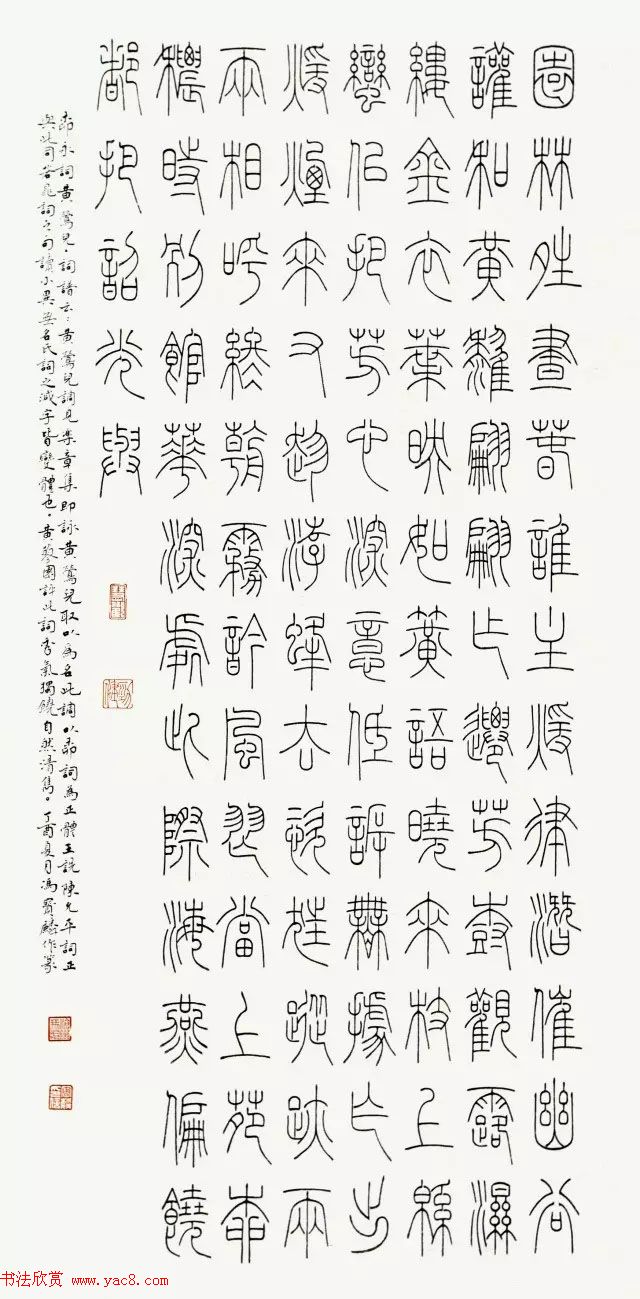 園林晴晝春誰主煖律潛催幽谷
讙和黃鸝翩翩乍遷芳尌觀露濕
縷金衣葉映如簧語曉來枝上緜
蠻佀把芳心深意低訴無據乍出
煖煙來又趁游蜂去恣狂蹤跡兩
兩相呼終朝霧吟風舞當上苑柳
穠時別館華深處此際海燕偏饒
都把韶光與
柳永詞黃鶯兒。詞譜云：黃鶯兒調見樂章集即詠黃鶯兒取以為名此調以柳詞為正體王詵陳允平詞正
與此同若晁詞之句讀小異無名氏詞之減字皆變體也。黃蓼園評此詞秀氣獨饒自然清雋。丁酉夏月馮寶麟作篆
书法欣赏 www.yac8.com